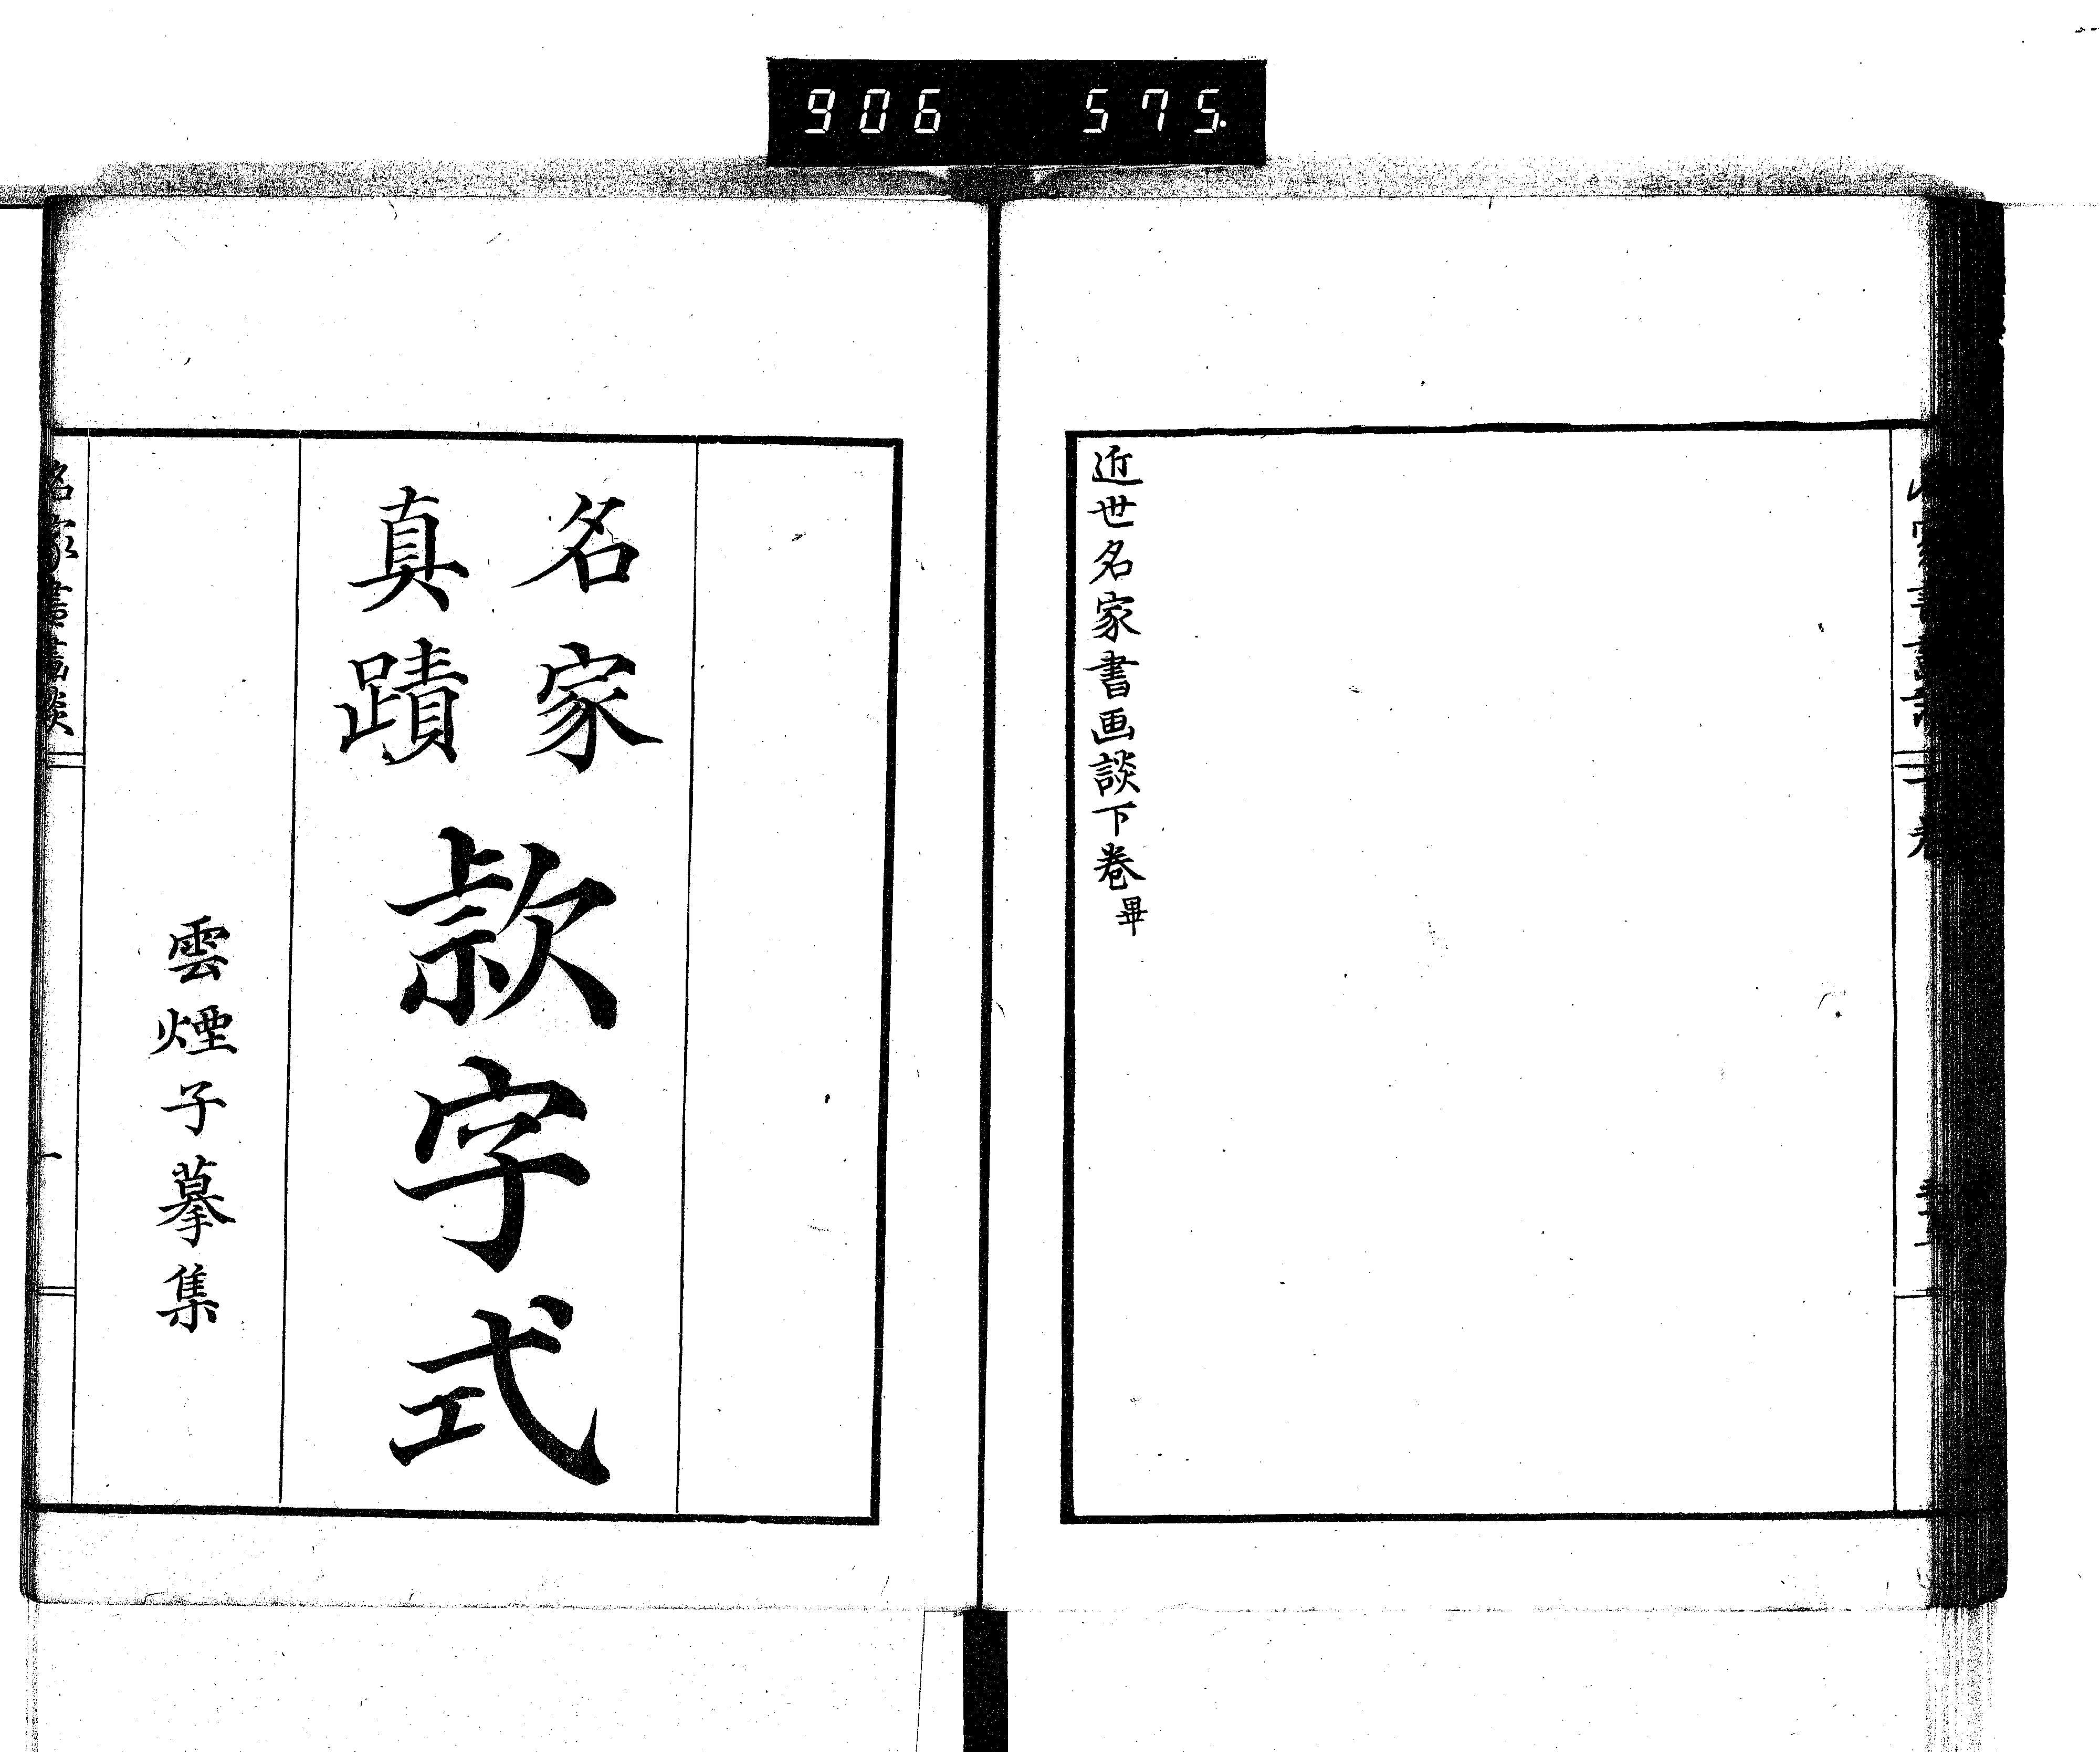 906 575.
近世名家書画談下巻畢
名家
真蹟
款字式
雲煙子摹集
名家書畫談